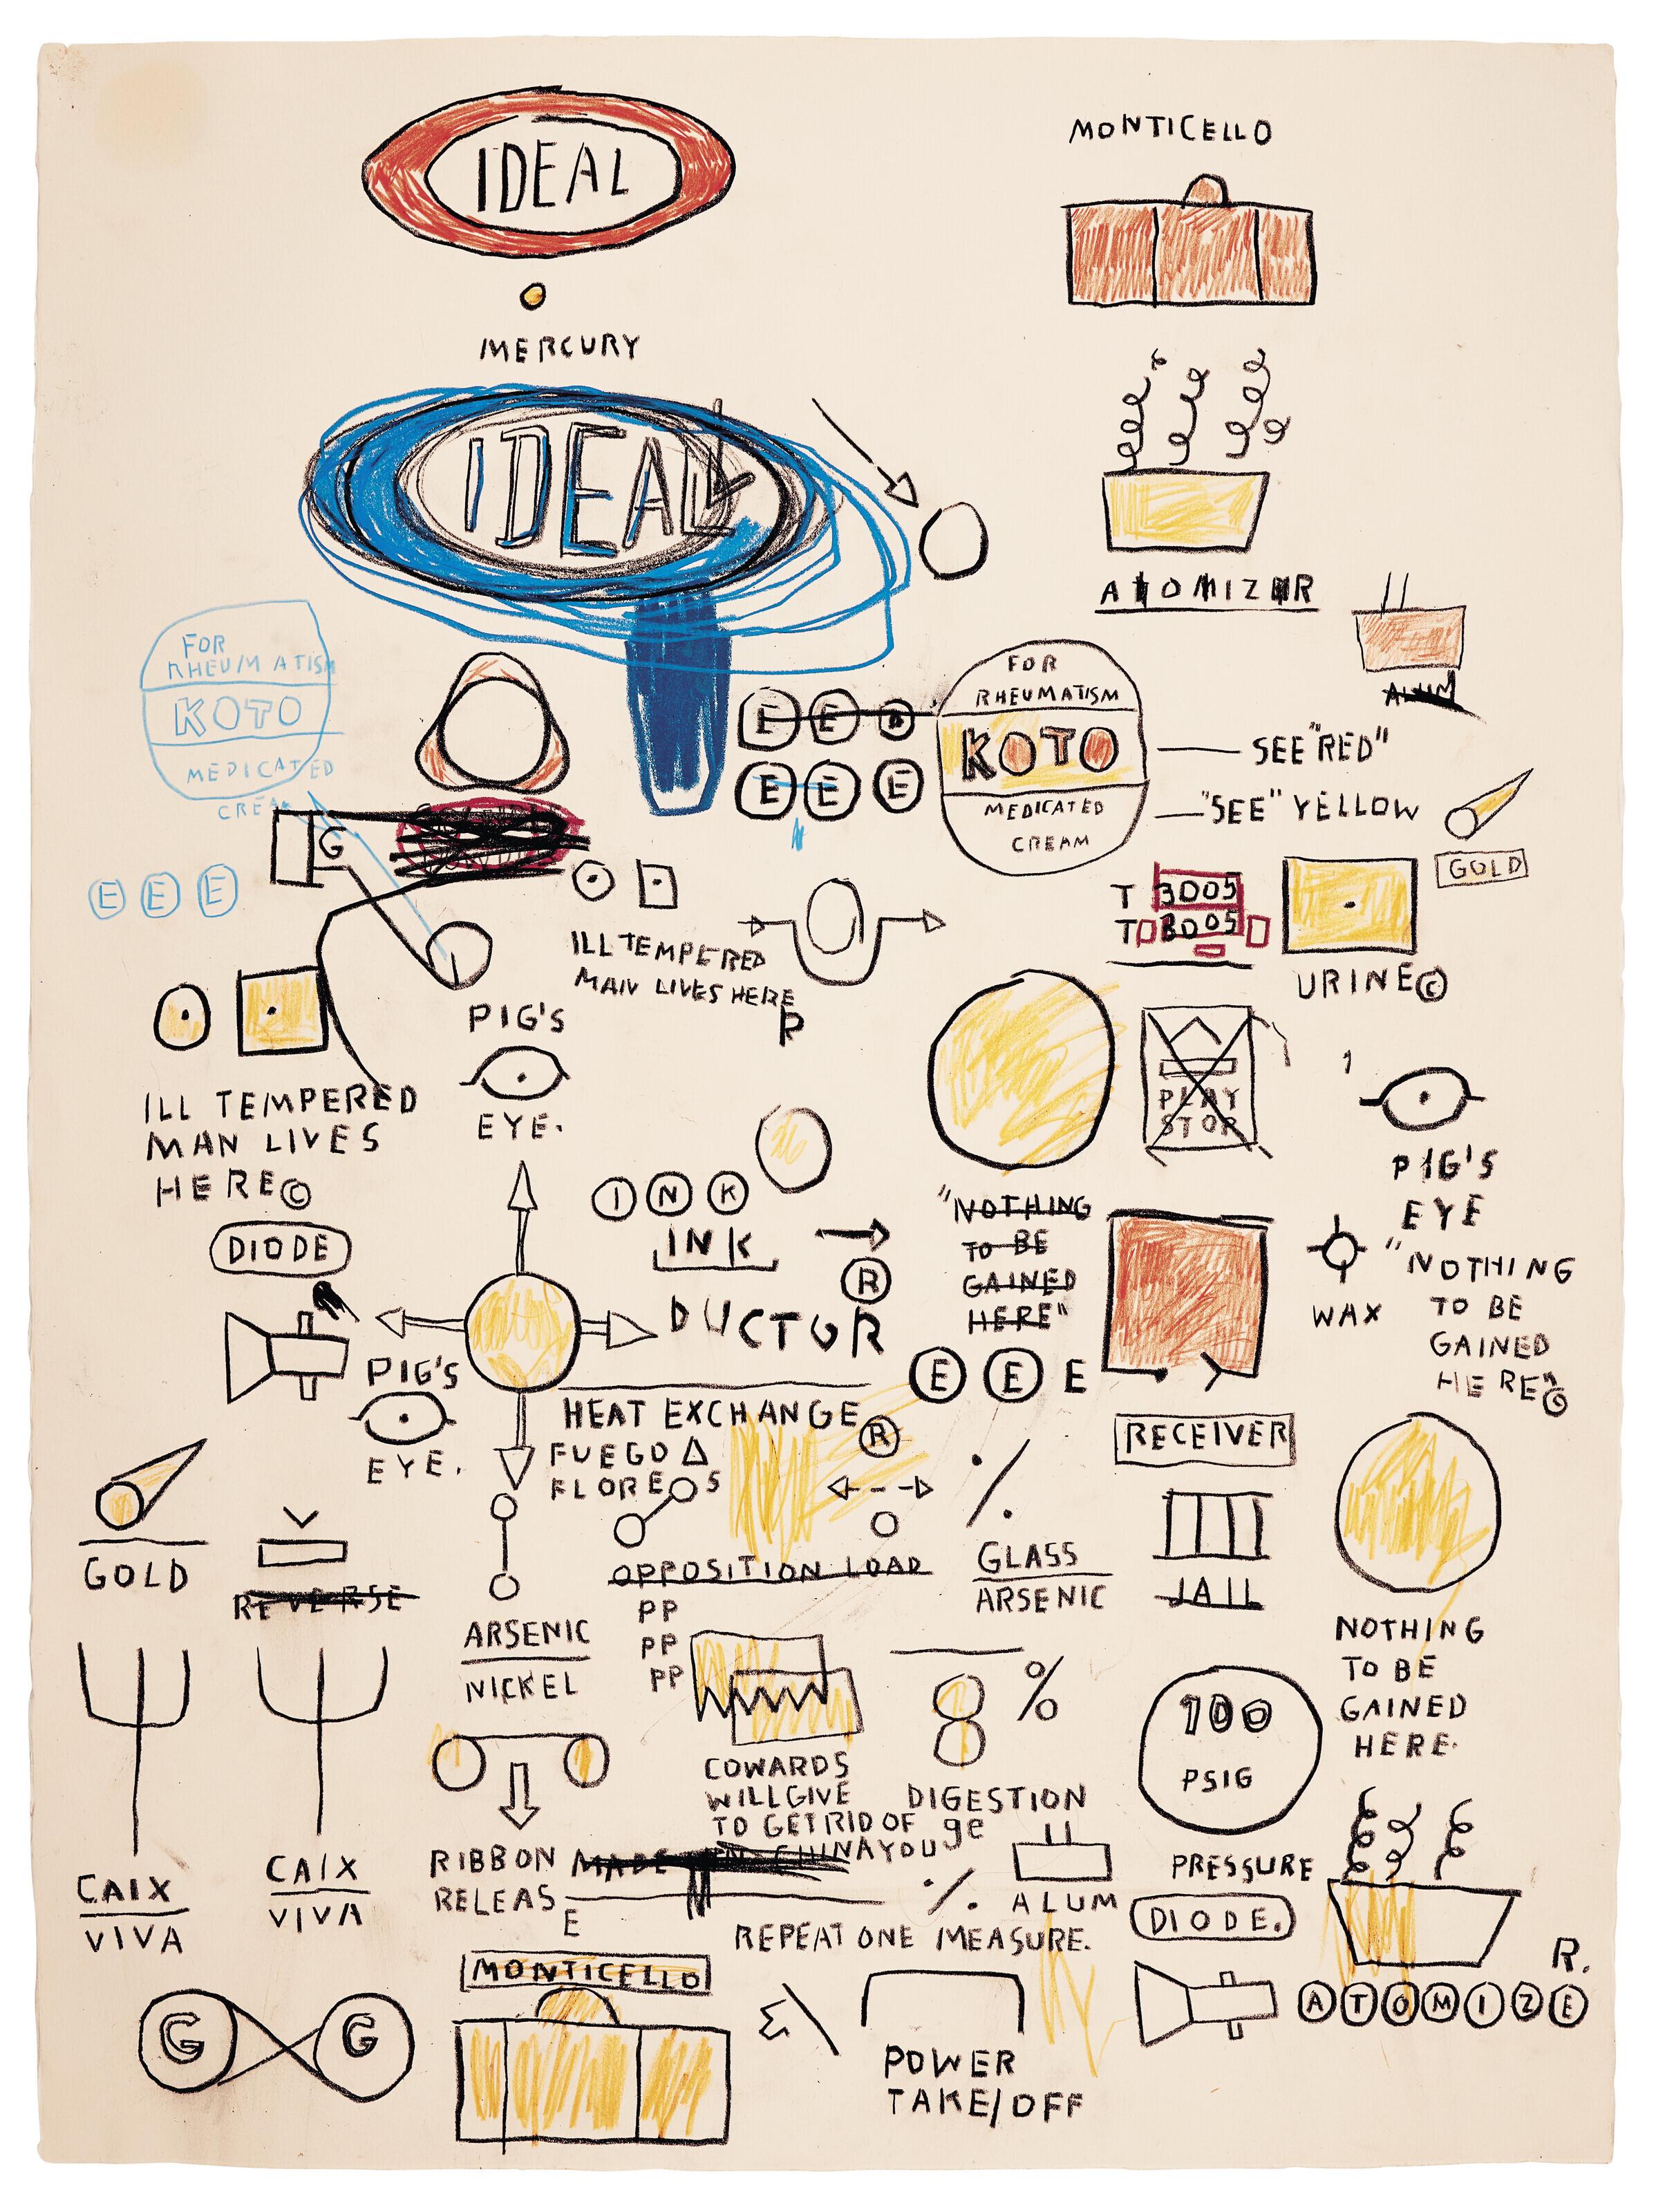 IDEAL
MONTICELLO
MERCURY
IDEAL
ATOMIZER
ALUM
FOR
RHEUMATISM
KOTO
MEDICATED
CREAM
FOR
RHEUMATISM
KOTO
MEDICATED
CREAM
E E
E E E
SEE "RED"
"SEE" YELLOW
GOLD
G
E E E
T 3005
T 3005
URINE©
ILL TEMPERED
MAN LIVES HERE
P
PIG'S
EYE.
ILL TEMPERED
MAN LIVES
HERE©
PLAY
STOP
PIG'S
EYE
INK
INK
"NOTHING
TO BE
GAINED
HERE"
DIODE
®
DUCTOR
WAX
"NOTHING
TO BE
GAINED
HERE"©
PIG'S
EYE.
E E E
HEAT EXCHANGE
®
FUEGO
FLOREOS
RECEIVER
GOLD
REVERSE
OPPOSITION LOAD
GLASS
ARSENIC
JAIL
PP
PP
PP
ARSENIC
NICKEL
NOTHING
TO BE
GAINED
HERE.
8 %
100
PSIG
COWARDS
WILL GIVE
TO GET RID OF
YOU
DIGESTION
ge
CAIX
VIVA
CAIX
VIVA
RIBBON
RELEAS
E
MADE IN CHINA
ALUM
PRESSURE
DIODE.
REPEAT ONE MEASURE.
MONTICELLO
R.
ATOMIZE
G G
POWER
TAKE/OFF